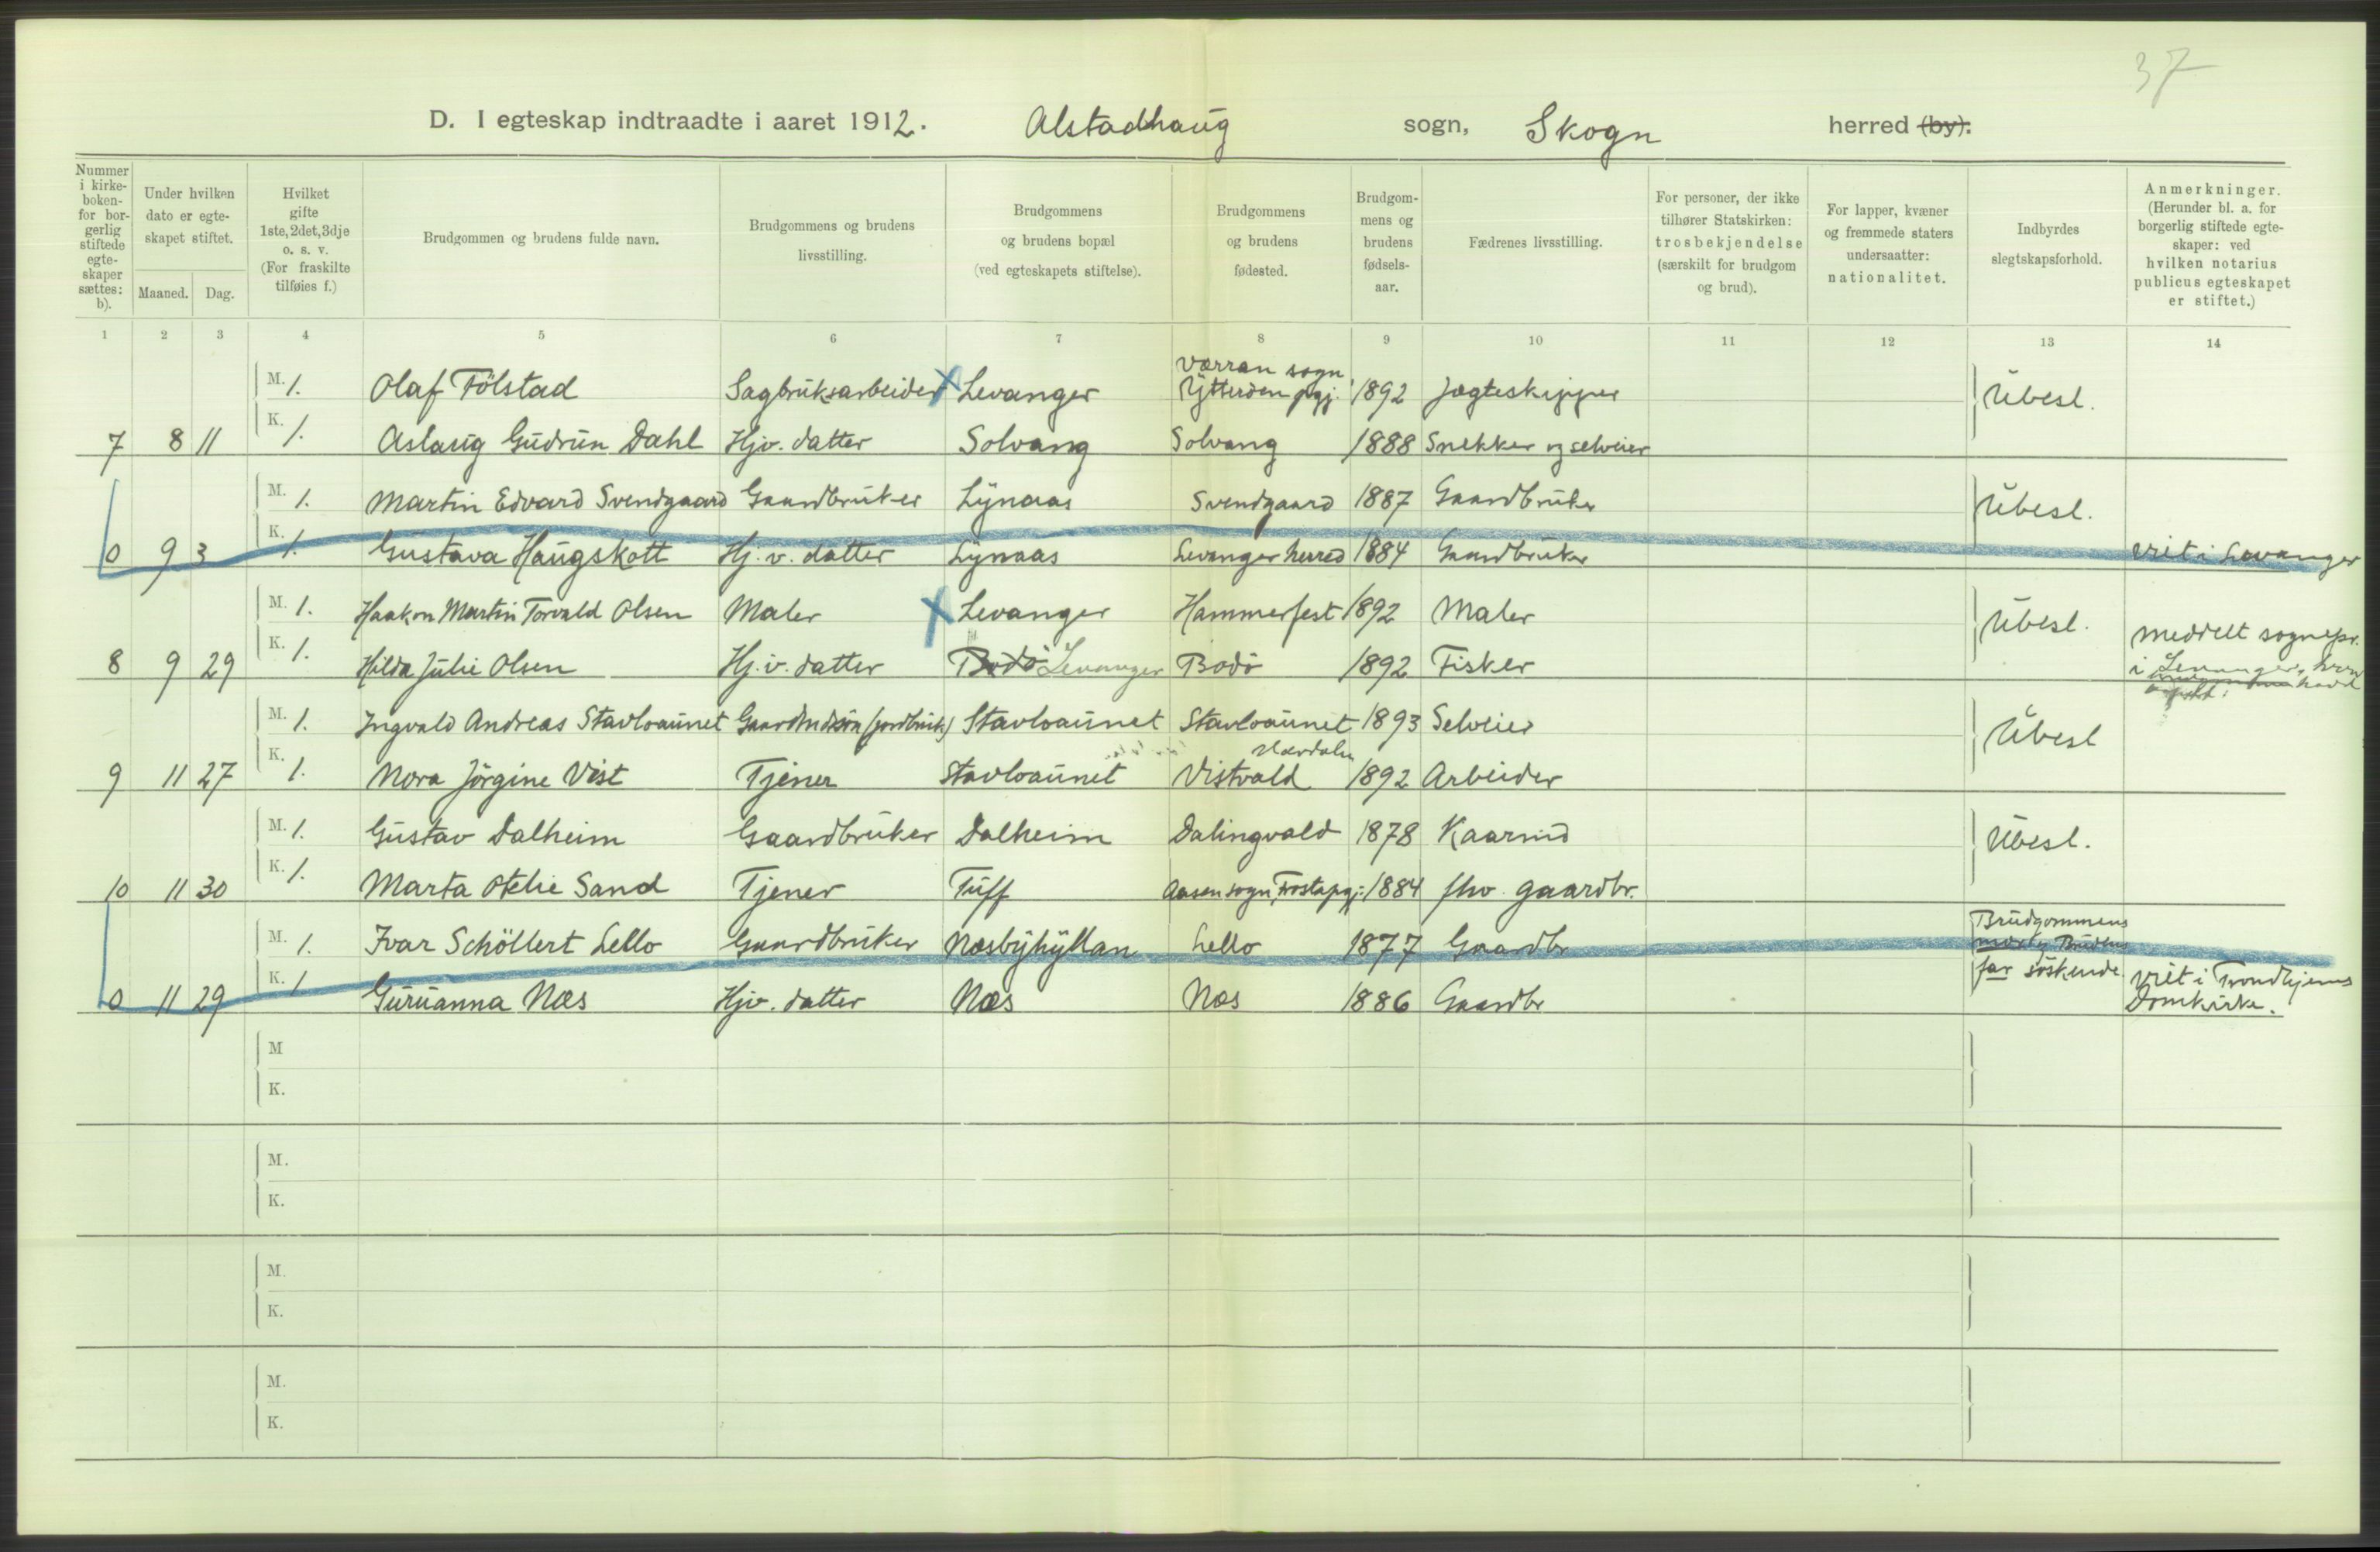 37
D. I egteskap indtraadte i aaret 1912. Alstadhaug sogn, Skogn herred (by).
Nummer i kirkeboken- for borgerlig stiftede egteskaper sættes: b).
Under hvilken dato er egteskapet stiftet.
Maaned. Dag.
Hvilket gifte 1ste, 2det, 3dje o. s. v. (For fraskilte tilføies f.)
Brudgommen og brudens fulde navn.
Brudgommens og brudens livsstilling.
Brudgommens og brudens bopæl (ved egteskapets stiftelse).
Brudgommens og brudens fødested.
Brudgommens og brudens fødselsaar.
Fædrenes livsstilling.
For personer, der ikke tilhører Statskirken: trosbekjendelse (særskilt for brudgom og brud).
For lapper, kvæner og fremmede staters undersaatter: nationalitet.
Indbyrdes slegtskapsforhold.
Anmerkninger. (Herunder bl. a. for borgerlig stiftede egteskaper: ved hvilken notarius publicus egteskapet er stiftet.)
1 2 3 4 5 6 7 8 9 10 11 12 13 14
M. 1. Olaf Fölstad Sagbruksarbeider X Levanger Værran sogn Ytteröen pgj. 1892 Jægteskipper Ubesl.
7 8 11 K. 1. Aslaug Gudrun Dahl Hjv. datter Solvang Solvang 1888 Snekker og selveier
M. 1. Martin Edvard Svendgaard Gaardbruker Lynaas Svendgaard 1887 Gaardbruker Ubesl.
0 9 3 K. 1. Gustava Haugskott Hj. v. datter Lynaas Levanger herred 1884 Gaardbruker Viet i Levanger
M. 1. Haakon Martin Torvald Olsen Maler X Levanger Hammerfest 1892 Maler Ubesl.
8 9 29 K. 1. Hilda Julie Olsen Hj. v. datter Bodö Levanger Bodö 1892 Fisker meddelt sognepr. i Levanger,
M. 1. Ingvald Andreas Stavloaunet (jordbruk) Stavloaunet Stavloaunet 1893 Selveier Ubesl
9 11 27 K. 1. Nora Jörgine Vist Tjener Stavloaunet Vistvald Værdalen 1892 Arbeider
M. 1. Gustav Dalheim Gaardbruker Dalheim Dalingvald 1878 Kaarmd Ubesl.
10 11 30 K. 1. Marta Otelie Sand Tjener Tuff Aasen sogn, Frosta pgj: 1884 fhv. gaardbr.
M. 1. Ivar Schöllert Lello Gaardbruker Næsbyhyllan Lello 1877 Gaardbr Brudgommens mor og Brudens far söskende.
0 11 29 K. 1 Guruanna Næs Hjv. datter Næs Næs 1886 Gaardbr Viet i Trondhjems Domkirke.
M
K.
M.
K.
M.
K.
M.
K.